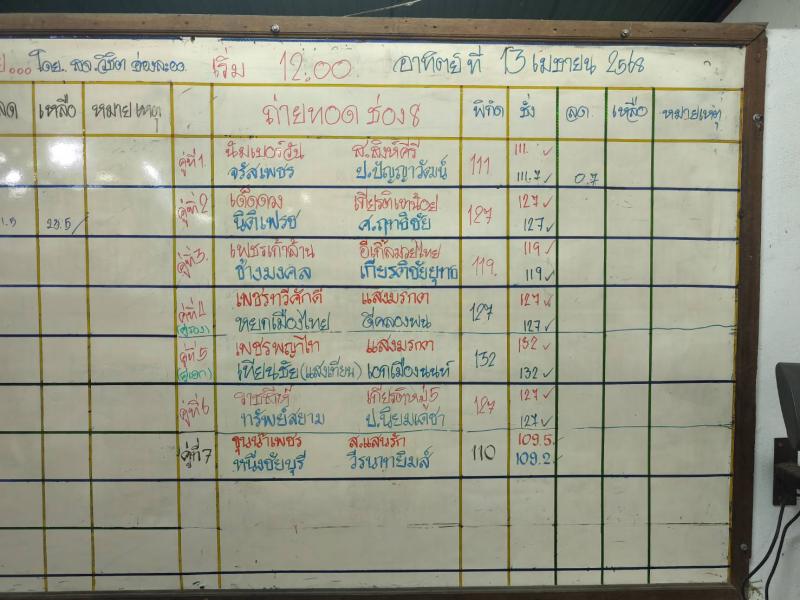 โดย. สจ.วิชิต อ่องละออ เริ่ม 12.00 อาทิตย์ ที่ 13 เมษายน 2568
ลด เหลือ หมายเหตุ ถ่ายทอด ช่อง8 พิกัด ชั่ง ลด เหลือ หมายเหตุ
คู่ที่1. นัมเบอร์วัน ส.สิงห์ศิรี 111 111. ✓
จรัสเพชร ป.ปัญญาวัฒน์ 111.7 ✓ 0.7
คู่ที่2 เด็ดดวง เกียรติเขาน้อย 127 127 ✓
นิติเฟรช ศ.ฤทธิชัย 127 ✓
คู่ที่3. เพชรเก้าล้าน อีเกิ้ลมวยไทย 119. 119 ✓
ช้างมงคล เกียรติชัยยุทธ 119 ✓
คู่ที่4 เพชรทวีศักดิ์ แสงมรกต 127 127 ✓
(คู่รอง) หยกเมืองไทย ดีคลองพน 127 ✓
คู่ที่5 เพชรพญาไท แสงมรกต 132 132 ✓
(คู่เอก) เทียนชัย(แสงเทียน) เอกเมืองนนท์ 132 ✓
คู่ที่6 ราชสีห์ เกียรติหมู่5 127 127 ✓
ทรัพย์สยาม ป.นิยมเดชา 127 ✓
คู่ที่7 ขุนน้ำเพชร ส.แสนรัก 110 109.5 ✓
หนึ่งชัยบุรี วีรนาทยิมส์ 109.2 ✓